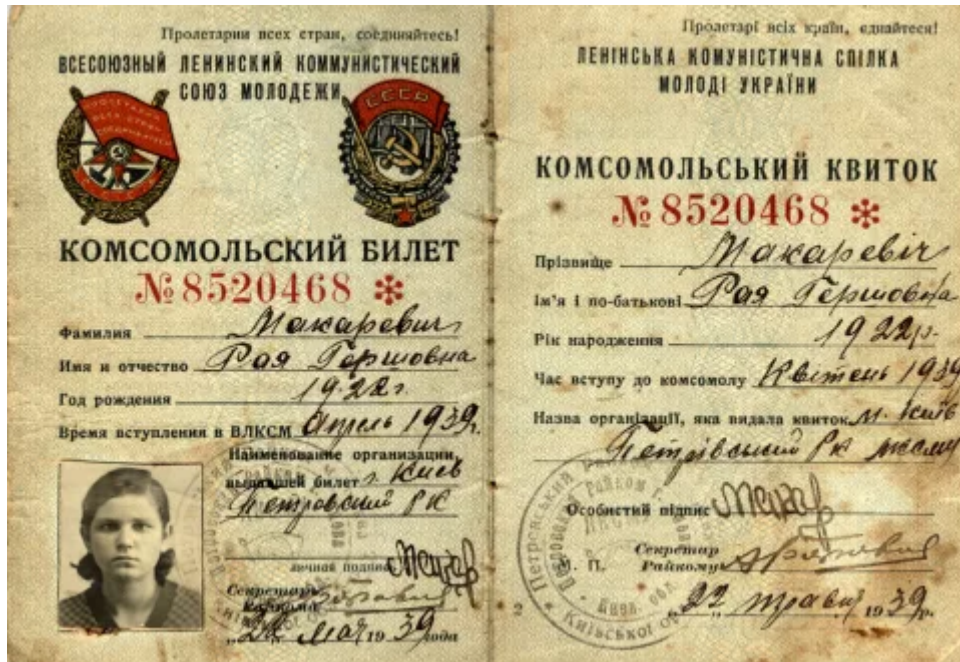 Пролетарии всех стран, соединяйтесь!
ВСЕСОЮЗНЫЙ ЛЕНИНСКИЙ КОММУНИСТИЧЕСКИЙ
СОЮЗ МОЛОДЕЖИ
СССР
КОМСОМОЛЬСКИЙ БИЛЕТ
№ 8520468 *
Фамилия Макаревич
Имя и отчество Рая Гершовна
Год рождения 1922 г.
Время вступления в ВЛКСМ Апрель 1939 г.
Наименование организации,
выдавшей билет г. Киев
Петровский РК
личная подпись Макар
Секретарь
Райкома
„22“ Мая 1939 года
Пролетарі всіх країн, єднайтеся!
ЛЕНІНСЬКА КОМУНІСТИЧНА СПІЛКА
МОЛОДІ УКРАЇНИ
КОМСОМОЛЬСЬКИЙ КВИТОК
№ 8520468 *
Прізвище Макаревіч
Ім'я і по-батькові Рая Гершовна
Рік народження 1922 р.
Час вступу до комсомолу Квітень 1939
Назва організації, яка видала квиток м. Київ
Петрівський РК ЛКСМУ
Особистий підпис Макар
Секретар
М. П. Райкому
„22“ травня 1939 р.
2